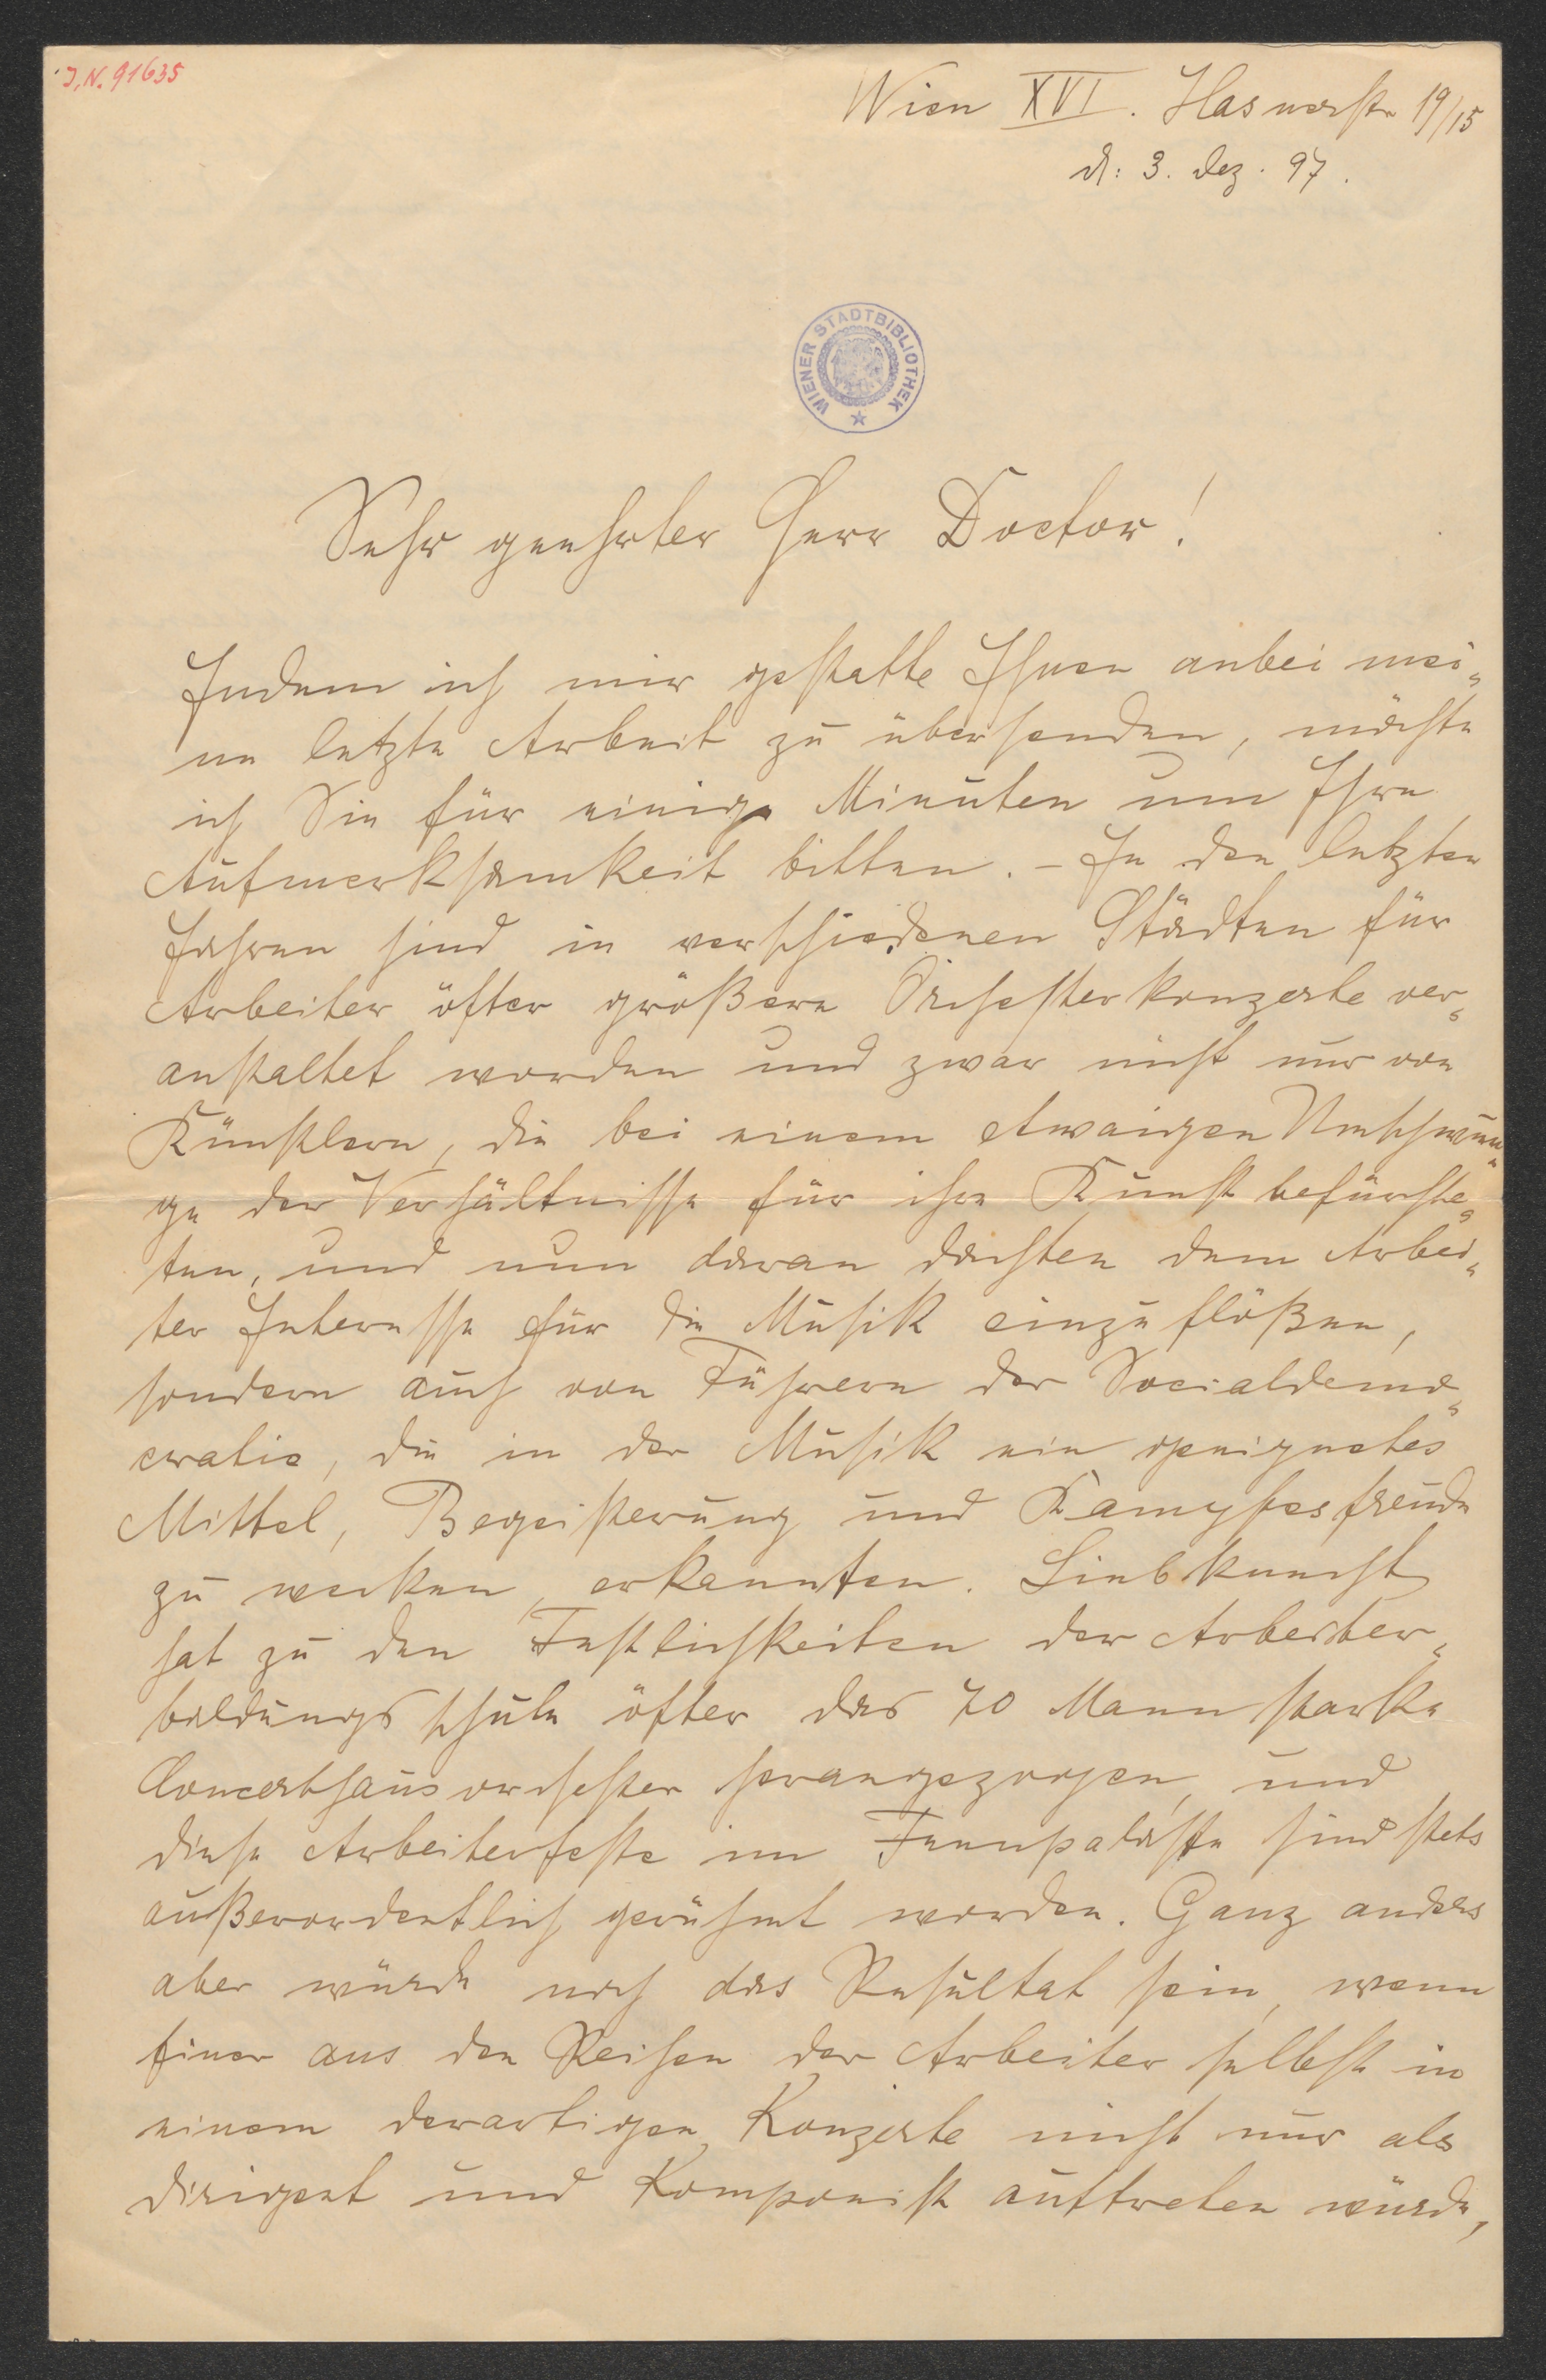 J.N. 91635
Wien XVI. Hasnerstr 19/15
d: 3. Dez. 97.
WIENER STADTBIBLIOTHEK
Sehr geehrter Herr Doctor!
Indem ich mir gestatte Ihnen anbei mei-
ne letzte Arbeit zu übersenden, möchte
ich Sie für einige Minuten um Ihre
Aufmerksamkeit bitten. – In den letzten
Jahren sind in verschiedenen Städten für
Arbeiter öfter größere Orchesterkonzerte ver-
anstaltet worden und zwar nicht nur von
Künstlern, die bei einem etwaigen Umschwun-
ge der Verhältnisse für ihre Kunst befürchte-
ten, und nun daran dachten dem Arbei-
ter Interesse für die Musik einzuflößen,
sondern auch von Führern der Socialdemo-
cratie, die in der Musik ein geeignetes
Mittel, Begeisterung und Kampfesfreude
zu wecken, erkannten. Liebknecht
hat zu den Festlichkeiten der Arbeiter-
bildungsschule öfter das 70 Mann starke
Concerthausorchester herangezogen, und
diese Arbeiterfeste im Feenpalaste sind stets
außerordentlich gerühmt worden. Ganz anders
aber würde noch das Resultat sein, wenn
Einer aus den Reihen der Arbeiter selbst in
einem derartigen Konzerte nicht nur als
Dirigent und Komponist auftreten würde,